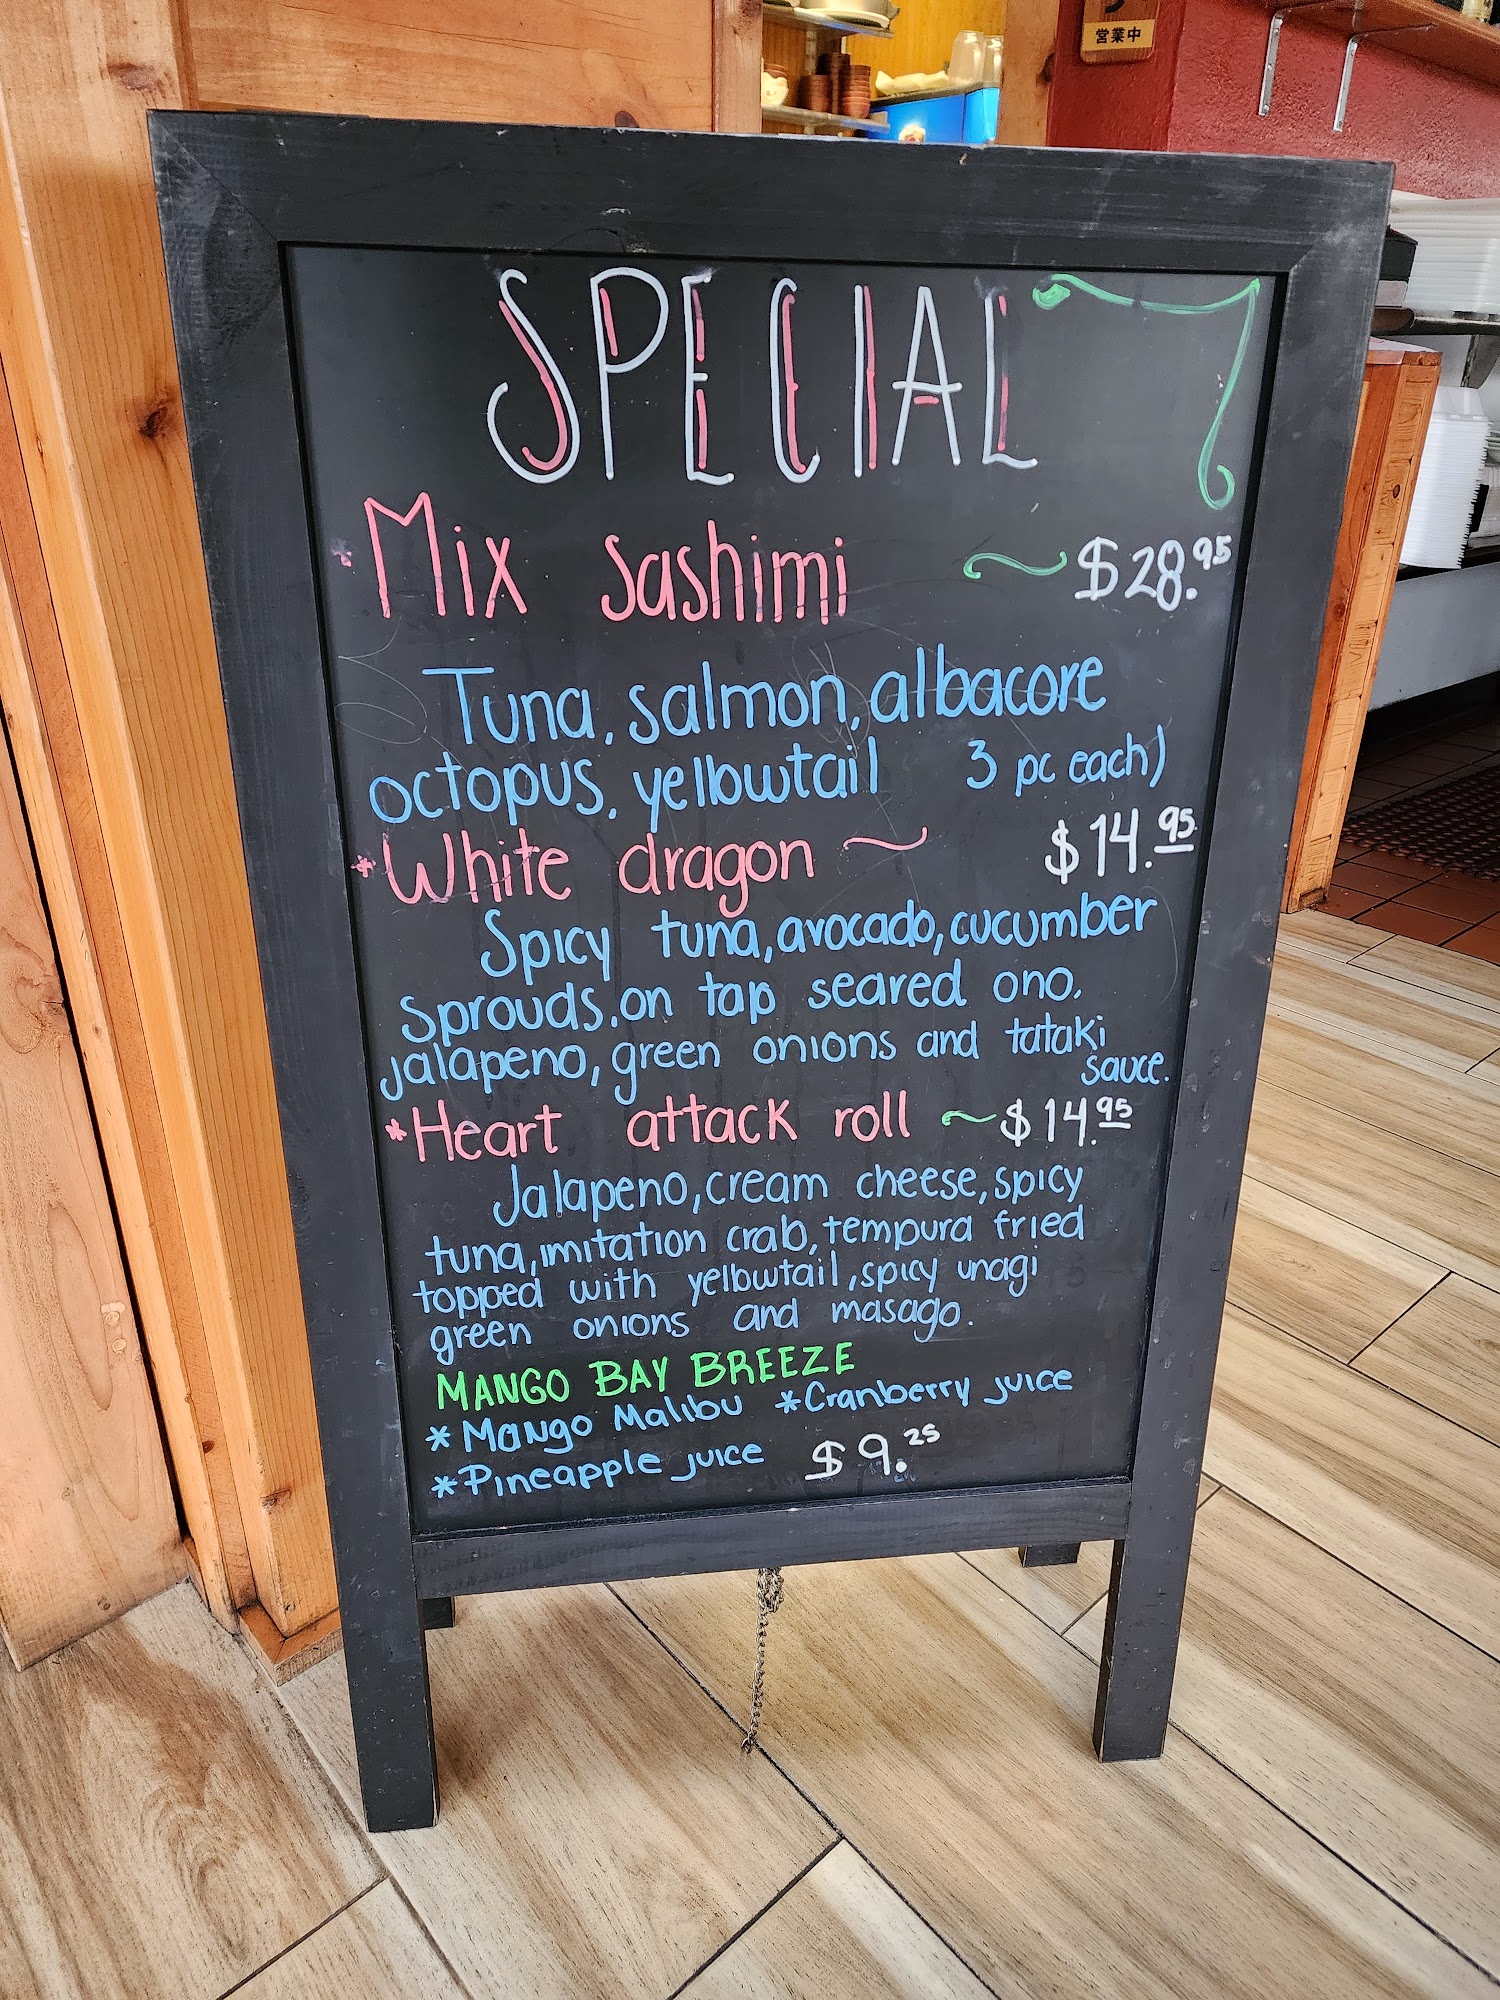 営業中
SPECIAL
*Mix sashimi ~ $28.95
Tuna, salmon, albacore
octopus, yellowtail 3 pc each)
*White dragon ~ $14.95
Spicy tuna, avocado, cucumber
sprouds, on top seared ono.
jalapeno, green onions and tataki
sauce.
*Heart attack roll ~ $14.95
Jalapeno, cream cheese, spicy
tuna, imitation crab, tempura fried
topped with yellowtail, spicy unagi
green onions and masago.
MANGO BAY BREEZE
*Mango Malibu *Cranberry juice
*Pineapple juice $9.25